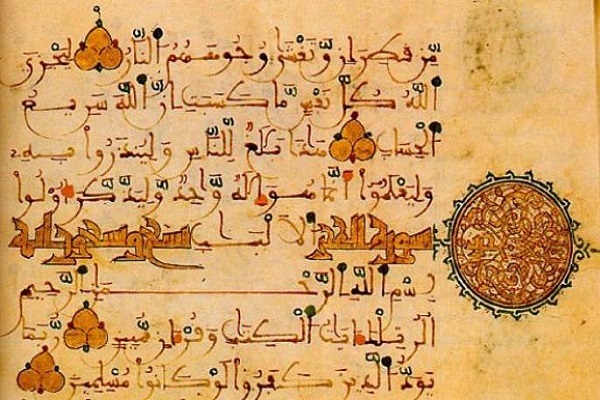 مِّن قَطِرَانٍ وَّتَغْشَىٰ وُجُوهَهُمُ النَّارُ لِيَجْزِيَ
اللَّهُ كُلَّ نَفْسٍ مَّا كَسَبَتِ انَّ اللَّهَ سَرِيعُ
الْحِسَابِ هَٰذَا بَلَٰغٌ لِّلنَّاسِ وَلِيُنذَرُوا بِهِ
وَلِيَعْلَمُوا أَنَّمَا هُوَ إِلَٰهٌ وَّاحِدٌ وَّلِيَذَّكَّرَ أُولُوا
سورة الحجر الالباب تسع وتسعون اية
بِسْمِ اللَّهِ الرَّحْمَٰنِ الرَّحِيمِ
الر تِلْكَ ءَايَٰتُ الْكِتَٰبِ وَقُرْءَانٍ مُّبِينٍ رُّبَمَا
يَوَدُّ الَّذِينَ كَفَرُوا لَوْ كَانُوا مُسْلِمِينَ